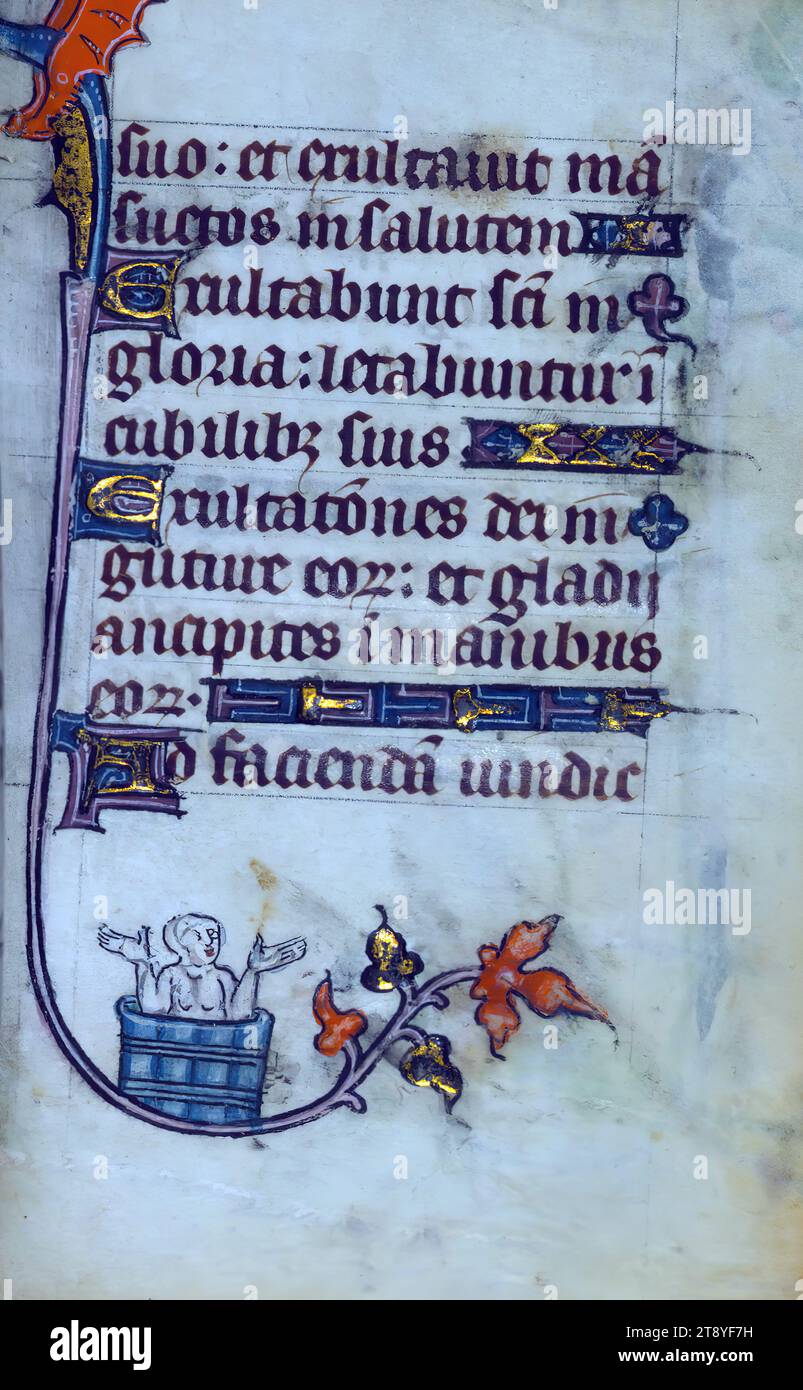 suo: et exultavit mā
suetos in salutem
Exultabunt sc̄i in
gloria: letabuntur ī
cubilibꝫ suis
Exultatōnes dei in
guture eoꝝ: et gladij
ancipites ī manibus
eoꝝ.
Ad faciendā uindic
alamy
Image ID: 2T8YF7H
www.alamy.com